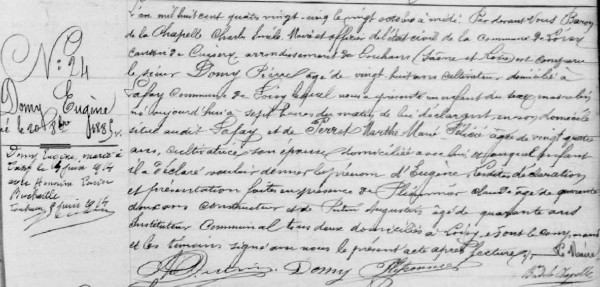 N° 24
Domy Eugène
né le 20 8bre 1885
Domy Eugène, marié à
le 9 juin 1914
avec Henriette
9 juin 1914
L'an mil huit cent quatre vingt-cinq le vingt octobre à midi Par devant Nous Baron
de la Chapelle Charles Maire et officier de l'état civil de la Commune de
canton de Cuisery, arrondissement de Louhans (Saône et Loire) est comparu
le sieur Domy Pierre âgé de vingt huit ans cultivateur domicilié à
Lafay Commune de lequel nous a présenté un enfant du sexe masculin
né aujourd'hui à sept heures du matin de lui déclarant en son domicile
situé audit Lafay et de Perret Marthe Marie âgée de vingt quatre
ans, cultivatrice son épouse domiciliée avec lui et auquel enfant
il a déclaré vouloir donner le prénom d'Eugène lesdites déclaration
et présentation faites en présence de Claude âgé de quarante
deux ans constructeur et de Putin Augustin âgé de quarante ans
Instituteur Communal tous deux domiciliés à et ont le comparant
et les témoins signé avec nous le présent acte après lecture. Le Maire
Domy
Bon de la Chapelle